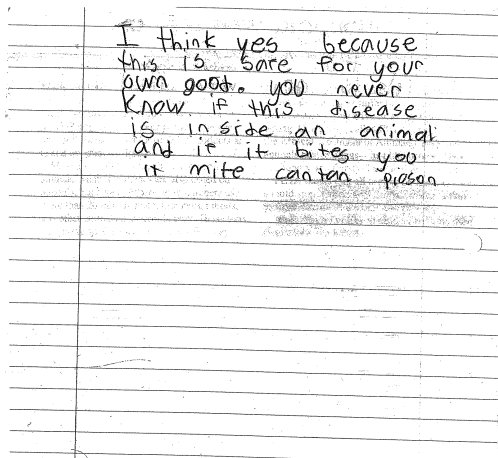 I think yes because
this is sare for your
own good. you never
know if this disease
is inside an animal
and ie it bites you
it mite cantan pioson